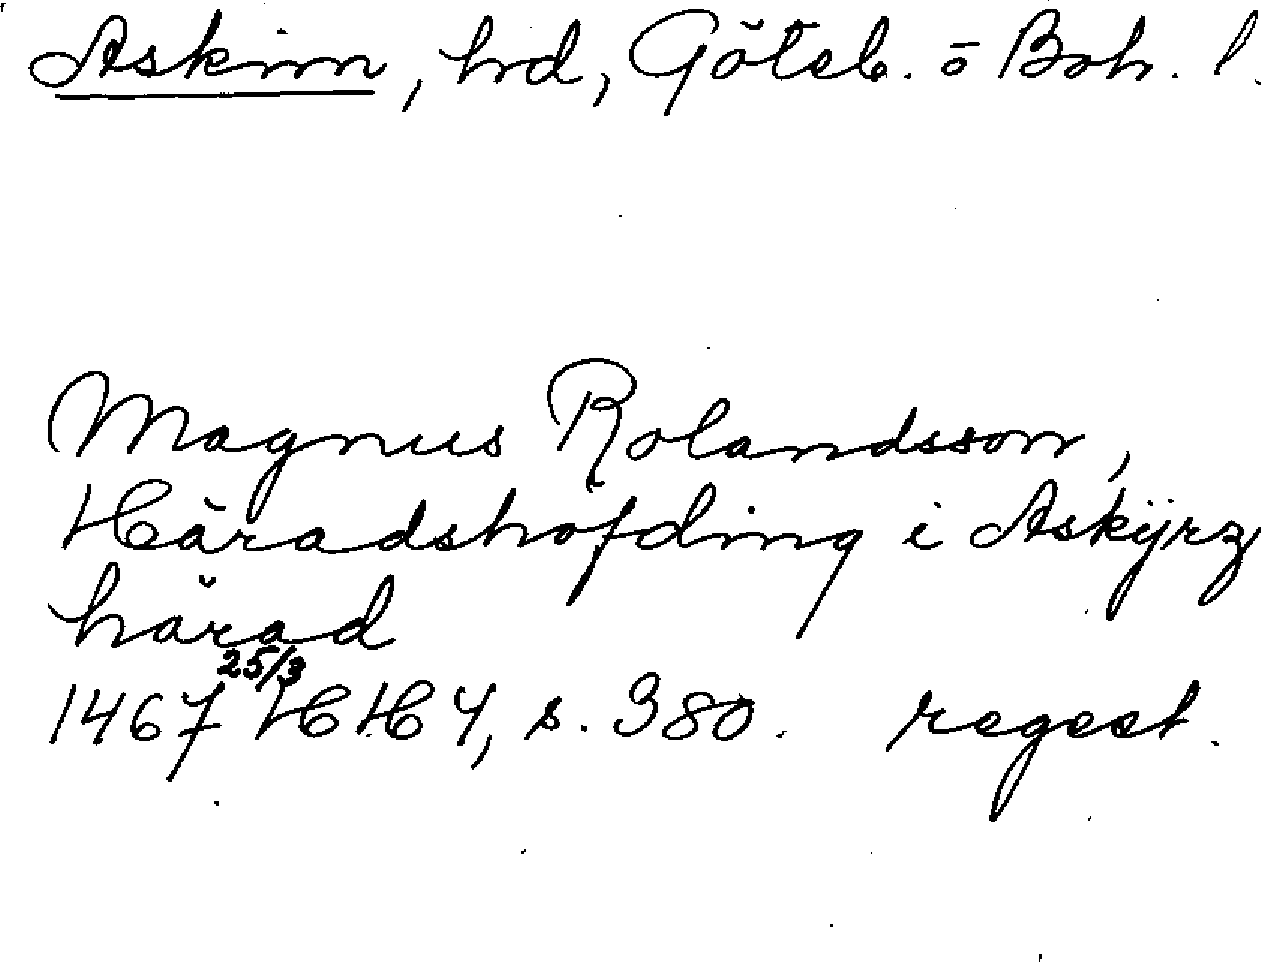 Askim, hd, Göteb. o Boh. l.
Magnus Rolandsson,
Häradshöfding i Askÿrz
härad
1467 25/3 HH 4, s. 380. regest.